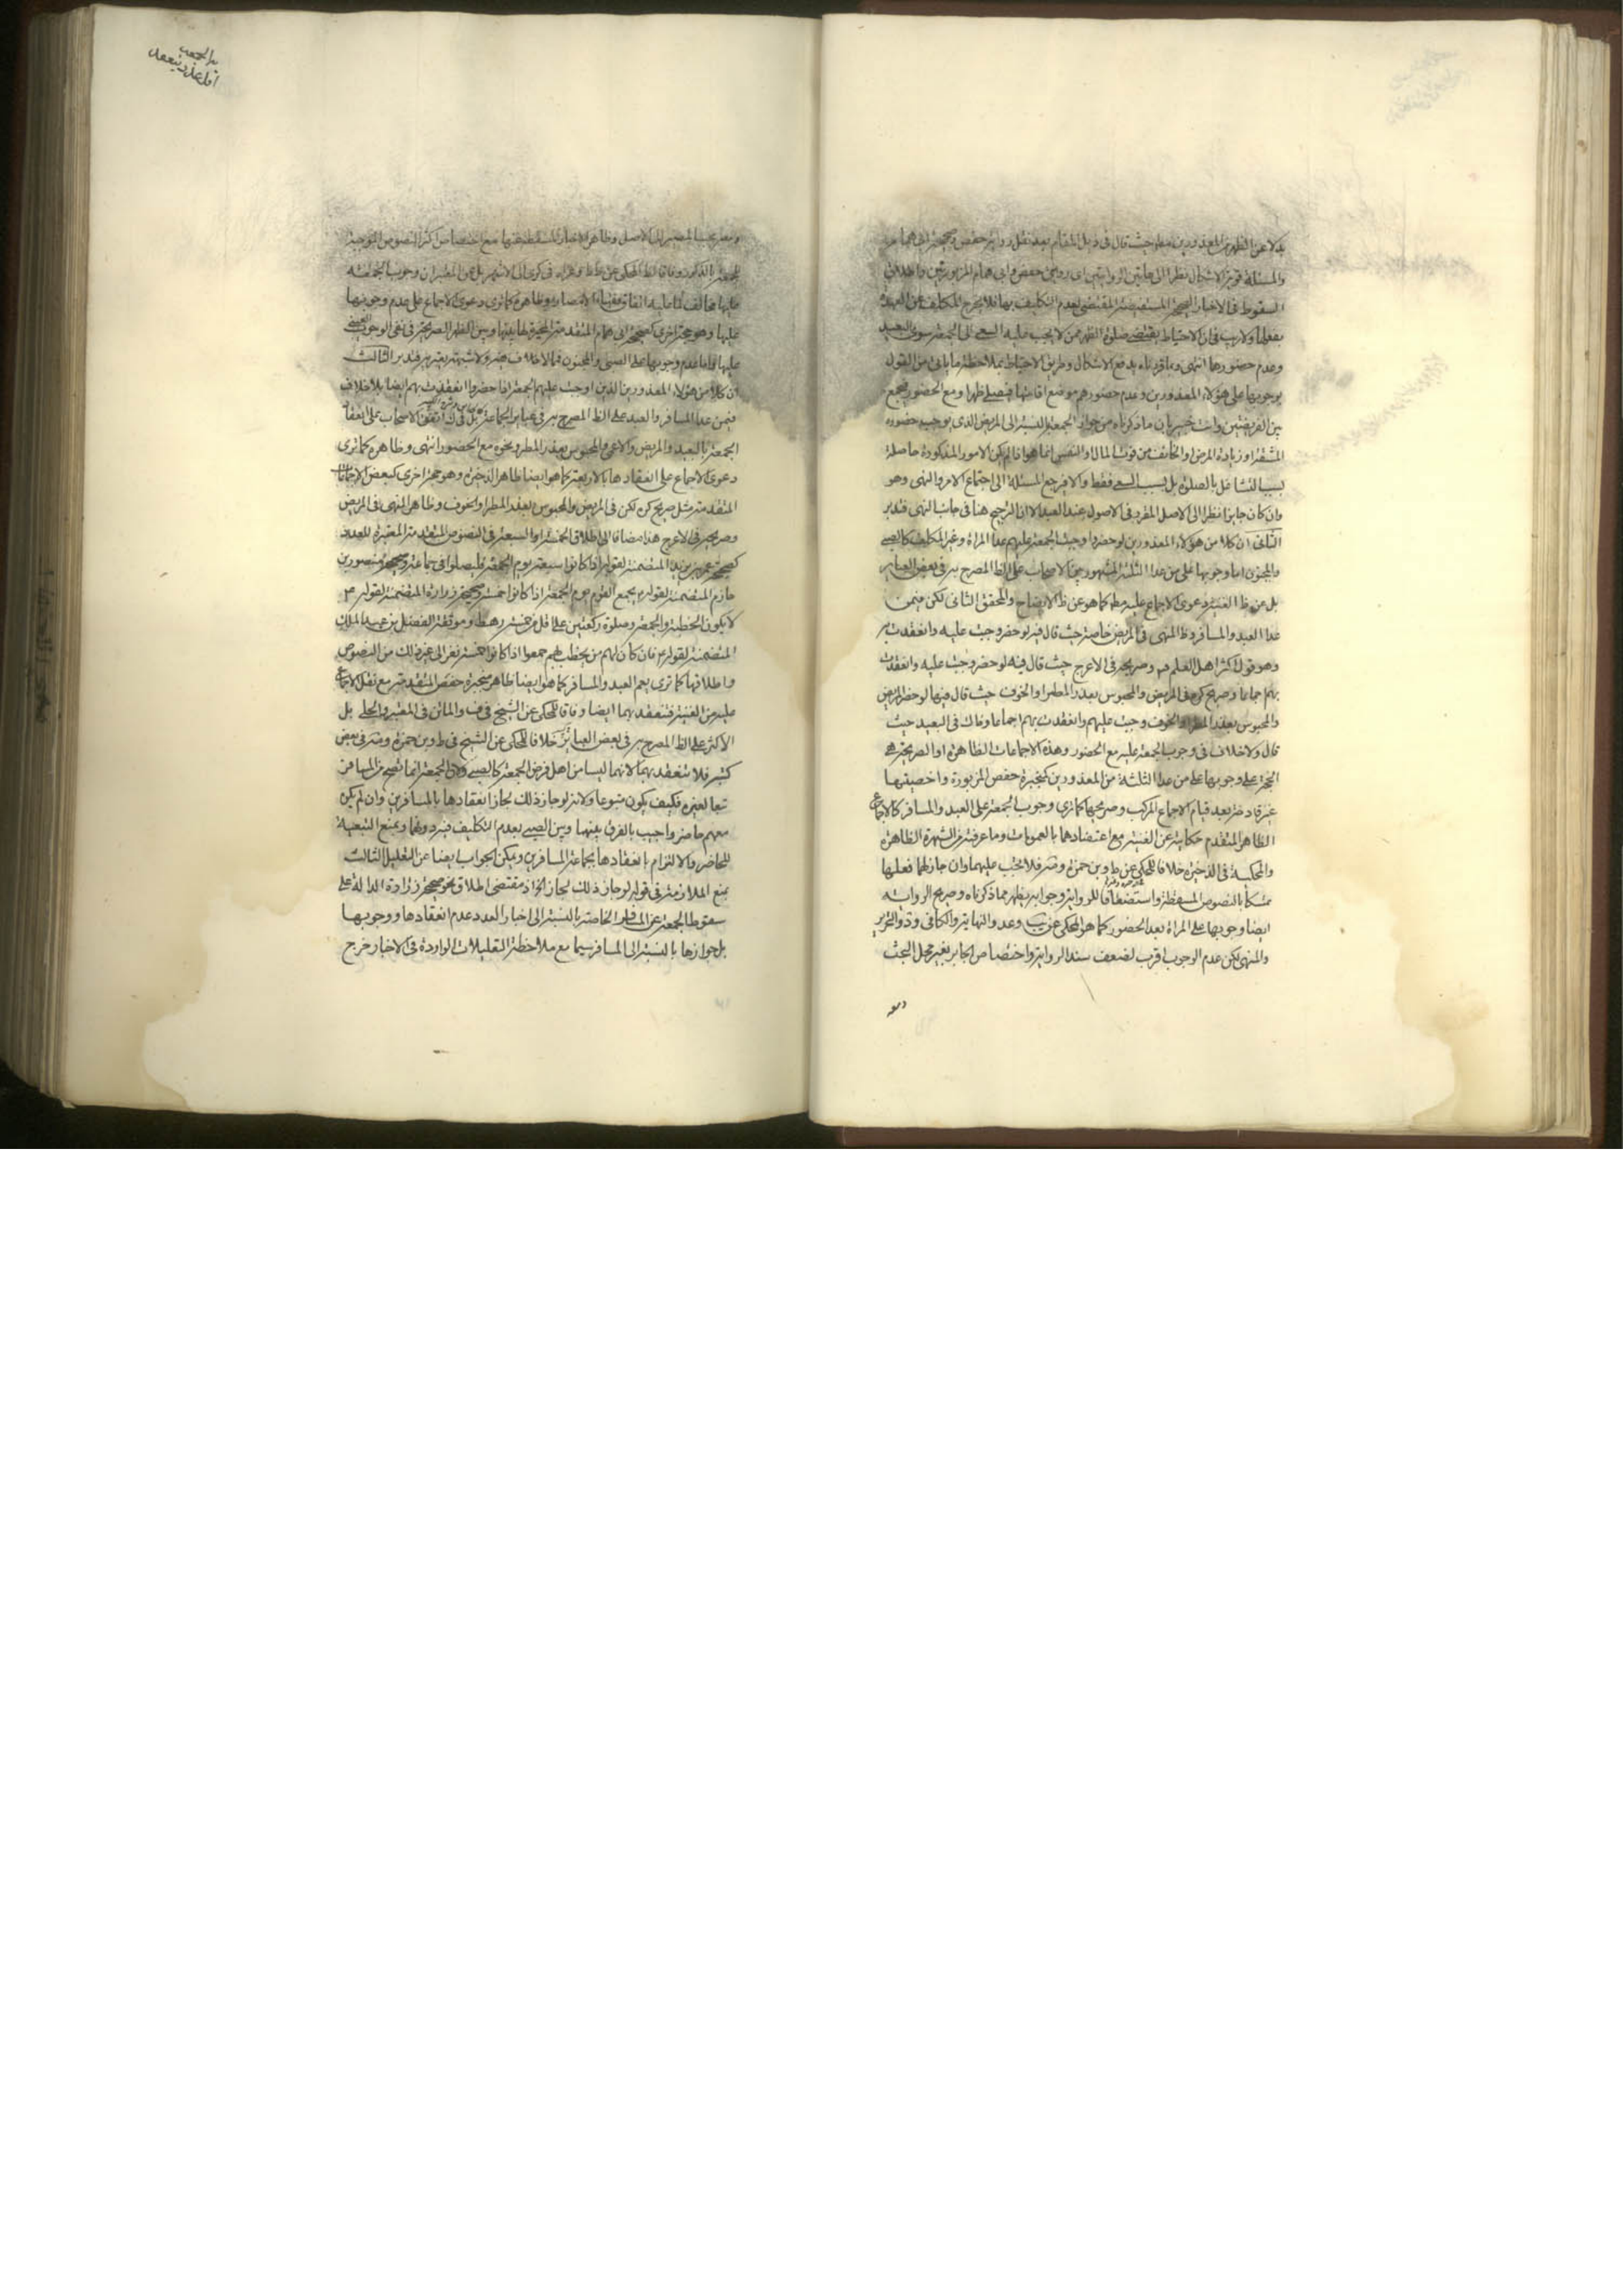 بدلا عن الظهر من المعذورين مط حيث قال فى ذيل المقام بعد نقل رواية حفص وصحيحة ابى همام
والمسئلة قوية الاشكال نظرا الى هاتين الروايتين اى روايتى حفص وابى همام المزبورتين واطلاق
السقوط فى الاخبار الصحيحة المستفيضة المقتضى لعدم التكليف بها فلا يخرج المكلف عن العهدة
بفعلها ولا ريب فى ان الاحتياط يقتضى صلوة الظهر ممن لا يجب عليه السعى الى الجمعة سوى البعيد
وعدم حضورها انتهى وما قررناه يدفع الاشكال وطريق الاحتياط بملاحظة ما ياتى من القول
بوجوبها على هؤلاء المعذورين وعدم حضورهم موضع اقامتها فيصلى ظهرا ومع الحضور يجمع
بين الفريضتين وانت خبير بان ما ذكرناه من جواز الجمعة بالنسبة الى المريض الذى يوجب حضوره
المشقة او زيادة المرض او الخائف من فوت المال او النفس انما هو اذا لم يكن الامور المذكورة حاصلة
بسبب التشاغل بالصلوة بل بسبب السعى فقط والا فيرجع المسئلة الى اجتماع الامر والنهى وهو
وان كان جايزا نظرا الى الاصل المقرر فى الاصول عند العبد الا ان الترجيح هنا فى جانب النهى فتدبر
الثانى ان كلا من هؤلاء المعذورين لو حضرها وجبت الجمعة عليهم عدا المراة وغير المكلف كالصبى
والمجنون اما وجوبها على من عدا الثلثة المشهور بين الاصحاب على الظ المصرح به فى بعض العباير
بل عن ظ الغنية دعوى الاجماع عليه مط كما هو عن ظ الايضاح والمحقق الثانى لكن فيمن
عدا العبد والمسافر وظ المنتهى فى المريض خاصة حيث قال فيه لو حضر وجبت عليه وانعقدت به
وهو قول اكثر اهل العلم وصريحه فى الاعرج حيث قال فيه لو حضر وجبت عليه وانعقدت
بهم اجماعا وصريح كره فى المريض والمحبوس بعذر المطر او الخوف حيث قال فيها لو حضر المريض
والمحبوس بعذر المطر او الخوف وجبت عليهم وانعقدت بهم اجماعا وقال فى البعيد حيث
قال ولا خلاف فى وجوب الجمعة عليه مع الحضور وهذه الاجماعات الظاهرة او الصريحة هى
الحجة على وجوبها على من عدا الثلثة من المعذورين كخبرة حفص المزبورة واخصيتها
غير قادحة بعد قيام الاجماع المركب وصريحها كما ترى وجوب الجمعة على العبد والمسافر كالاجماع
الظاهر المتقدم حكايته عن الغنية مع اعتضادها بالعمومات وما عرفته من الشهرة الظاهرة
والمحكية فى الذخيرة خلافا للمحكى عن ط وبن حمزة وضر فلا يجب عليهما وان جاز لهما فعلها
تمسكا بالنصوص المسقطة واستضعافا للرواية وجوابه يظهر مما ذكرناه وصريح الرواية
ايضا وجوبها على المراة بعد الحضور كما هو المحكى عن يب وعد والنهاية والكافى ود والتحرير
والمنتهى لكن عدم الوجوب اقرب لضعف سند الرواية واختصاص الجابر بغير محل البحث
يدا لجمعه
اقل عذر ينعقد
للجمعة بالذكور وفاقا للظ المحكى عن
عليها مخالف لما عليه اتفاق فقهاء الامصار وظاهره كما ترى دعوى الاجماع على عدم وجوبها
عليها وهو حجة اخرى كصحيحة ابى همام المتقدمة
عليها واما عدم وجوبها على الصبى والمجنون فمما لا خلاف فيه ولا شبهة يعتريه فتدبر الثالث
ان كلا من هؤلاء المعذورين الذين اوجبت عليهم الجمعة اذا حضروا انعقدت بهم ايضا بلا خلاف
فيمن عدا المسافر والعبد على الظ المصرح به فى عباير الجماعة بل فى ك اتفق الاصحاب على انعقاد
الجمعة بالبعيد والمريض والاعمى والمحبوس بعذر المطر ونحوه مع الحضور انتهى وظاهره كما ترى
دعوى الاجماع على انعقادها بالاربعة كما هو ايضا ظاهر الذخيرة وهو حجة اخرى كبعض الاجماعات
المتقدمة مثل صريح كره لكن فى المريض والمحبوس لعذر المطر او الخوف وظاهر المنتهى فى المريض
وصريحه فى الاعرج هذا مضافا الى اطلاق الخمسة او السبعة فى النصوص المتقدمة المعتبرة للعدد
كصحيحة عمر بن يزيد المتضمنة لقوله اذا كانوا سبعة يوم الجمعة فليصلوا فى جماعة وصحيحة منصور بن
حازم المتضمنة لقوله يجمع القوم يوم الجمعة اذا كانوا خمسة وصحيحة زرارة المتضمنة لقوله ع
لا يكون الخطبة والجمعة وصلوة ركعتين على اقل من خمسة رهط وموثقة الفضل بن عبد الملك
المتضمنة لقوله ع فان كان لهم من يخطب لهم جمعوا اذا كانوا خمسة نفر الى غير ذلك من النصوص
واطلاقها كما ترى يعم العبد والمسافر كما هو ايضا ظاهر خبرة حفص المتقدمة مع نقل الاجماع
عليه من الغنية فتنعقد بهما ايضا وفاقا للمحكى عن الشيخ فى ف والماتن فى المعتبر والحلى بل
الاكثر على الظ المصرح به فى بعض العباير خلافا للمحكى عن الشيخ فى ط وبن حمزة وضر فى بعض
كتبه فلا تنعقد بهما لانهما ليسا من اهل فرض الجمعة كالصبى ولان الجمعة انما تصح من المسافر
تبعا لغيره فكيف يكون متبوعا ولانه لو جاز ذلك لجاز انعقادها بالمسافرين وان لم يكن
معهم حاضر واجيب بالفرق بينهما وبين الصبى بعدم التكليف فيه دونهما وبمنع التبعية
للحاضر والالتزام بانعقادها بجماعة المسافرين ويمكن الجواب ايضا عن التعليل الثالث
بمنع الملازمة فى قوله لو جاز ذلك لجاز اذ مقتضى اطلاق نحو صحيحة زرارة الدالة على
سقوط الجمعة عن المسافر الخاصة بالنسبة الى اخبار العدد عدم انعقادها ووجوبها
بل جوازها بالنسبة الى المسافر سيما مع ملاحظة التعليلات الواردة فى الاخبار خرج